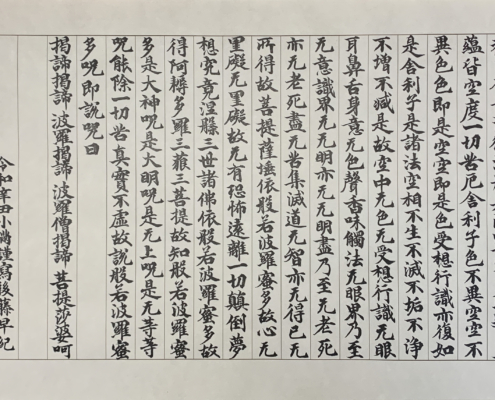 蘊皆空度一切苦厄舍利子色不異空空不
異色色即是空空即是色受想行識亦復如
是舍利子是諸法空相不生不滅不垢不浄
不增不減是故空中无色无受想行識无眼
耳鼻舌身意无色聲香味觸法无眼界乃至
无意識界无无明亦无无明盡乃至无老死
亦无老死盡无苦集滅道无智亦无得已无
所得故菩提薩埵依般若波羅蜜多故心无
罣礙无罣礙故无有恐怖遠離一切顛倒夢
想究竟涅槃三世諸佛依般若波羅蜜多故
得阿耨多羅三藐三菩提故知般若波羅蜜
多是大神呪是大明呪是无上呪是无等等
呪能除一切苦真實不虛故說般若波羅蜜
多呪即說呪曰
揭諦揭諦 波羅揭諦 波羅僧揭諦 菩提莎婆呵
令和辛丑小満謹寫後藤早紀